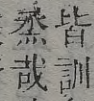 皆訓
烝哉